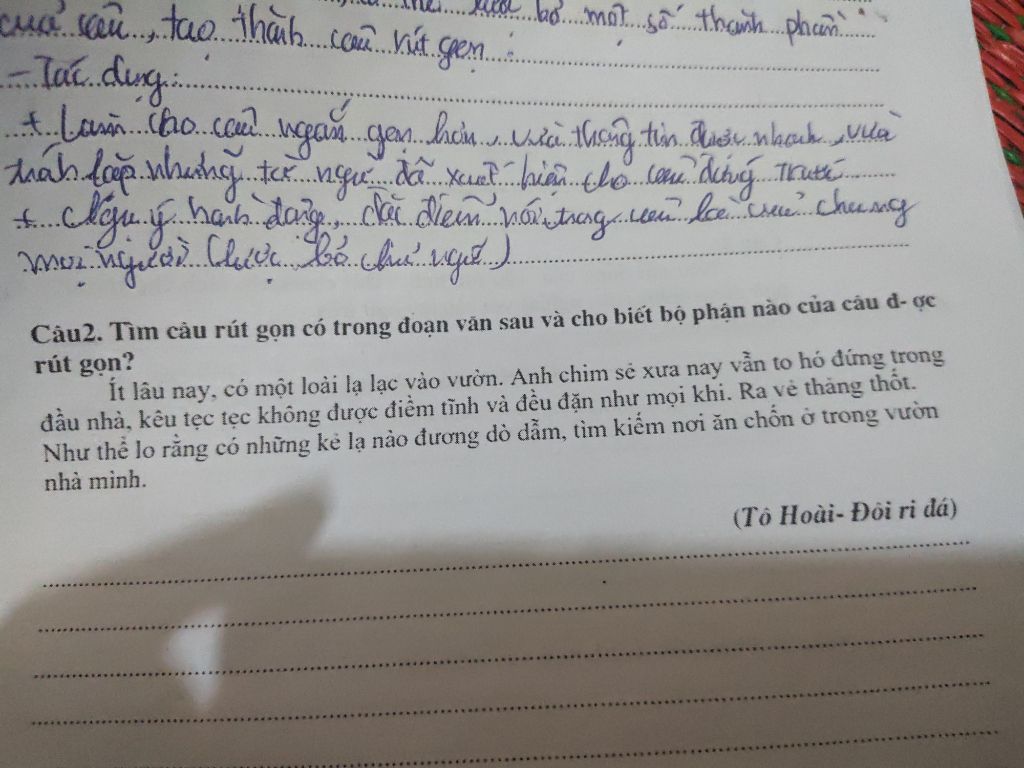 của câu, tạo thành câu rút gọn. bỏ một số thành phần
- Tác dụng:
+ Làm cho câu ngắn gọn hơn, vừa thông tin được nhanh, vừa
tránh lặp những từ ngữ đã xuất hiện cho câu đứng trước
+ Ngụ ý hành động, đặc điểm nói trong câu là của chung
mọi người (lược bỏ chủ ngữ)
Câu2. Tìm câu rút gọn có trong đoạn văn sau và cho biết bộ phận nào của câu đ- ợc
rút gọn?
Ít lâu nay, có một loài lạ lạc vào vườn. Anh chim sẻ xưa nay vẫn to hó đứng trong
đầu nhà, kêu tẹc tẹc không được điềm tĩnh và đều đặn như mọi khi. Ra vẻ thảng thốt.
Như thể lo rằng có những kẻ lạ nào đương dò dẫm, tìm kiếm nơi ăn chốn ở trong vườn
nhà mình.
(Tô Hoài- Đôi ri đá)